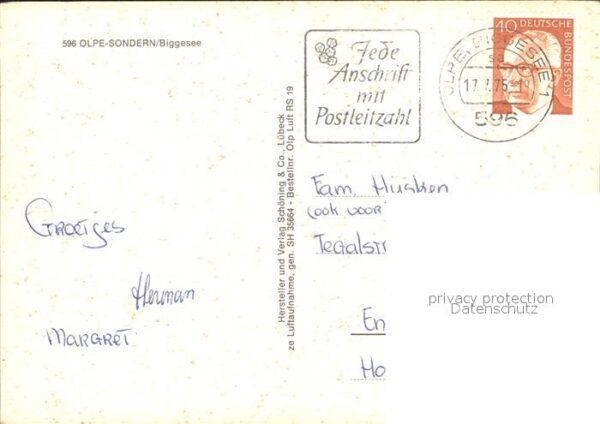 596 OLPE-SONDERN/Biggesee
Jede
Anschrift
mit
Postleitzahl
OLPE, BIGGESEE 1
17.7.75
596
40 DEUTSCHE BUNDESPOST
Groetjes
Herman
MARGRET
Hersteller und Verlag Schöning & Co., Lübeck
ze Luftaufnahme, gen. SH 35664 - Bestellnr. Olp Luft RS 19
Fam. Husken
(ook voor
Tegalst
En
Ho
privacy protection
Datenschutz